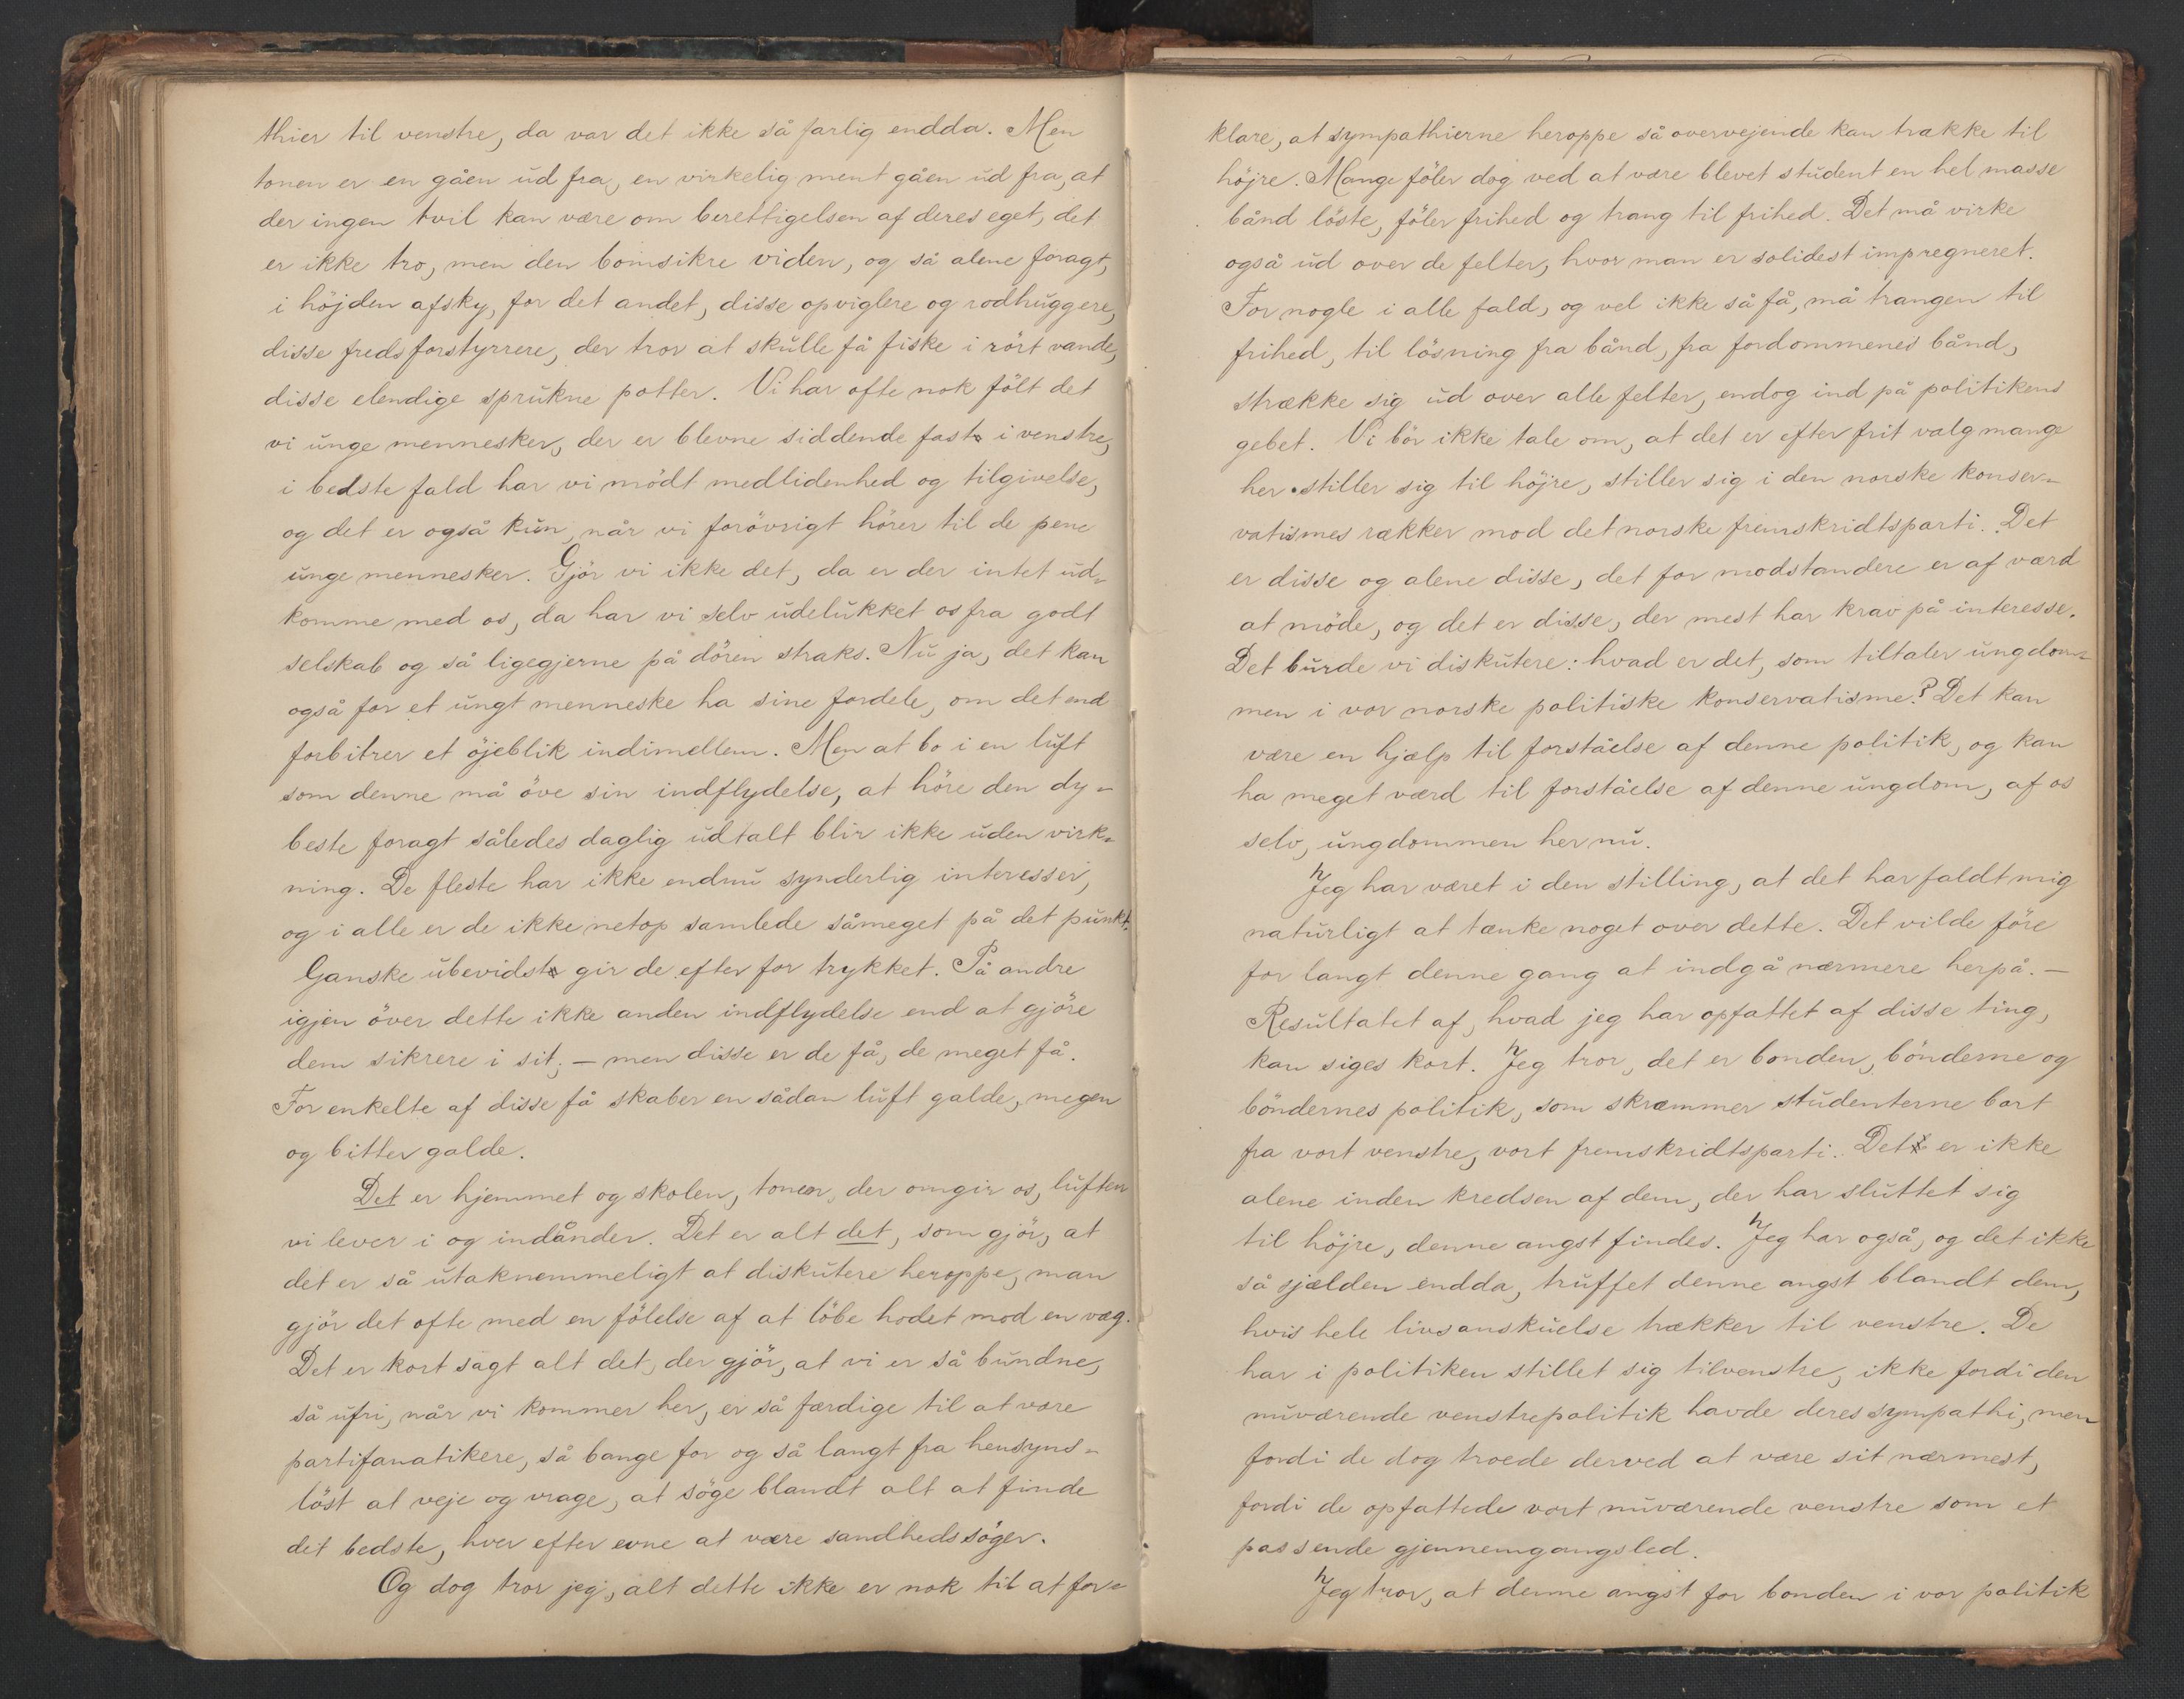 thier til venstre, da var det ikke så farlig endda. Men
tonen er en gåen ud fra, en virkelig ment gåen ud fra, at
der ingen tvil kan være om berettigelsen af deres eget, det
er ikke tro, men den bomsikre viden, og så alene foragt,
i höjden afsky, for det andet, disse opviglere og rodhuggere,
disse fredsforstyrrere, der tror at skulle få fiske i rört vande,
disse elendige sprukne potter. Vi har ofte nok fölt det
vi unge mennesker, der er blevne siddende fast i venstre,
i bedste fald har vi mödt medlidenhed og tilgivelse,
og det er også kun, når vi forövrigt hörer til de pene
unge mennesker. Gjör vi ikke det, da er der intet ud-
komme med os, da har vi selv udelukket os fra godt
selskab og så ligegjerne på dören straks. Nu ja, det kan
også for et ungt menneske ha sine fordele, om det end
forbitrer et öjeblik indimellem. Men at bo i en luft
som denne må öve sin indflydelse, at höre den dy-
beste foragt således daglig udtalt blir ikke uden virk-
ning. De fleste har ikke endnu synderlig interesser,
og i alle er de ikke netop samlede såmeget på det punkt.
Ganske ubevidst gir de efter for trykket. På andre
igjen över dette ikke anden indflydelse end at gjöre
dem sikrere i sit; – men disse er de få, de meget få.
For enkelte af disse få skaber en sådan luft galde, megen
og bitter galde.
Det er hjemmet og skolen, tonen, der omgir os, luften
vi lever i og indånder. Det er alt det, som gjör, at
det er så utaknemmeligt at diskutere heroppe, man
gjör det ofte med en fölelse af at löbe hodet mod en væg.
Det er kort sagt alt det, der gjör, at vi er så bundne,
så ufri, når vi kommer her, er så færdige til at være
partifanatikere, så bange for og så langt fra hensyns-
löst at veje og vrage, at söge blandt alt at finde
det bedste, hver efter evne at være sandhedssöger.
Og dog tror jeg, alt dette ikke er nok til at for-
klare, at sympathierne heroppe så overvejende kan trække til
höjre. Mange föler dog ved at være blevet student en hel masse
bånd löste, föler frihed og trang til frihed. Det må virke
også ud over de felter, hvor man er solidest impregneret.
For nogle i alle fald, og vel ikke så få, må trangen til
frihed, til lösning fra bånd, fra fordommenes bånd,
strække sig ud over alle felter, endog ind på politikens
gebet. Vi bör ikke tale om, at det er efter frit valg mange
her stiller sig til höjre, stiller sig i den norske konser-
vatismes rækker mod det norske fremskridtsparti. Det
er disse og alene disse, det for modstandere er af værd
at möde, og det er disse, der mest har krav på interesse.
Det burde vi diskutere: hvad er det, som tiltaler ungdom-
men i vor norske politiske konservatisme? Det kan
være en hjælp til forståelse af denne politik, og kan
ha meget værd til forståelse af denne ungdom, af os
selv, ungdommen her nu.
Jeg har været i den stilling, at det har faldt mig
naturligt at tænke noget over dette. Det vilde före
for langt denne gang at indgå nærmere herpå. –
Resultatet af, hvad jeg har opfattet af disse ting,
kan siges kort. Jeg tror, det er bonden, bönderne og
böndernes politik, som skræmmer studenterne bort
fra vort venstre, vort fremskridtsparti. Det er ikke
alene inden kredsen af dem, der har sluttet sig
til höjre, denne angst findes. Jeg har også, og det ikke
så sjælden endda, truffet denne angst blandt dem,
hvis hele livsanskuelse trækker til venstre. De
har i politiken stillet sig tilvenstre, ikke fordi den
nuværende venstrepolitik havde deres sympathi, men
fordi de dog troede derved at være sit nærmest,
fordi de opfattede vort nuværende venstre som et
passende gjennemgangsled.
Jeg tror, at denne angst for bonden i vor politik